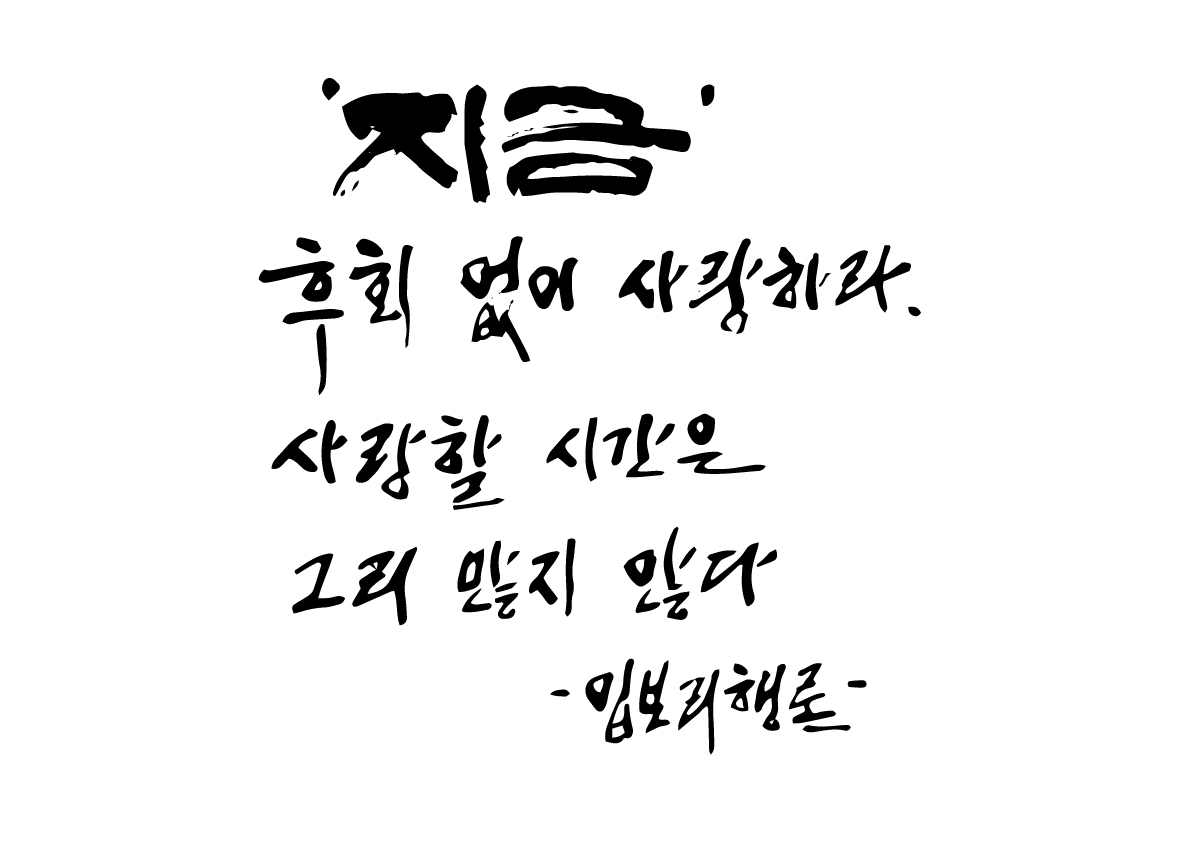 '지금'
후회 없이 사랑하라.
사랑할 시간은
그리 많지 않다
-입보리행론-